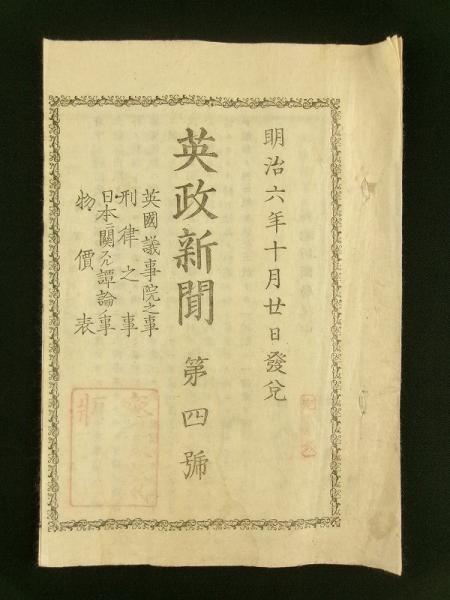 明治六年十月廿日發兌
英政新聞 第四號
英國議事院之事
刑律之事
日本ニ關スル譚論ノ事
物價表